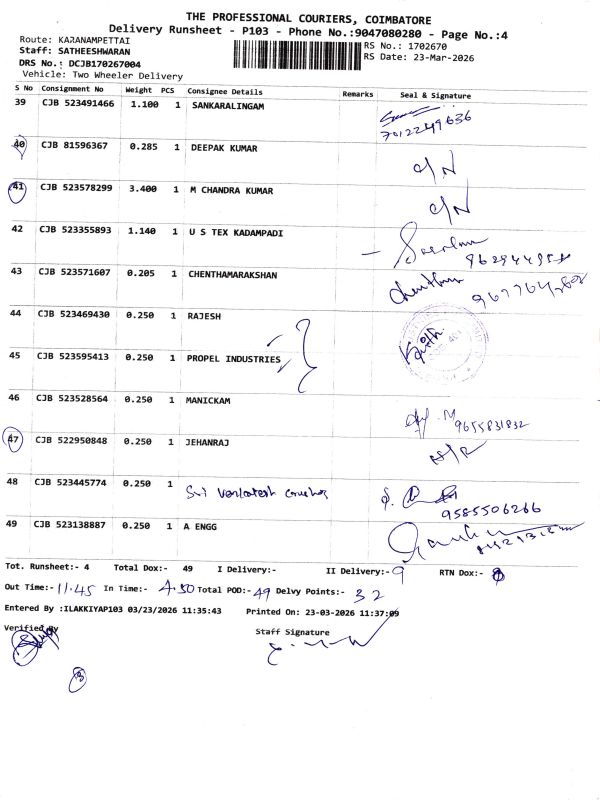 THE PROFESSIONAL COURIERS, COIMBATORE
Delivery Runsheet - P103 - Phone No.:9047080280 - Page No.:4
Route: KARANAMPETTAI
RS No.: 1702670
Staff: SATHEESHWARAN
RS Date: 23-Mar-2026
DRS No.: DCJB170267004
Vehicle: Two Wheeler Delivery
S No Consignment No Weight PCS Consignee Details Remarks Seal & Signature
39 CJB 523491466 1.100 1 SANKARALINGAM
7012249636
40 CJB 81596367 0.285 1 DEEPAK KUMAR
41 CJB 523578299 3.400 1 M CHANDRA KUMAR
42 CJB 523355893 1.140 1 U S TEX KADAMPADI
43 CJB 523571607 0.205 1 CHENTHAMARAKSHAN
44 CJB 523469430 0.250 1 RAJESH
45 CJB 523595413 0.250 1 PROPEL INDUSTRIES
46 CJB 523528564 0.250 1 MANICKAM
9655831832
47 CJB 522950848 0.250 1 JEHANRAJ
48 CJB 523445774 0.250 1 Sri Venkatesh crusher
9585506266
49 CJB 523138887 0.250 1 A ENGG
Tot. Runsheet:- 4 Total Dox:- 49 I Delivery:- II Delivery:- 9 RTN Dox:-
Out Time:- 11.45 In Time:- 4.50 Total POD:- 49 Delvy Points:- 32
Entered By :ILAKKIYAP103 03/23/2026 11:35:43 Printed On: 23-03-2026 11:37:09
Verified By
Staff Signature
3